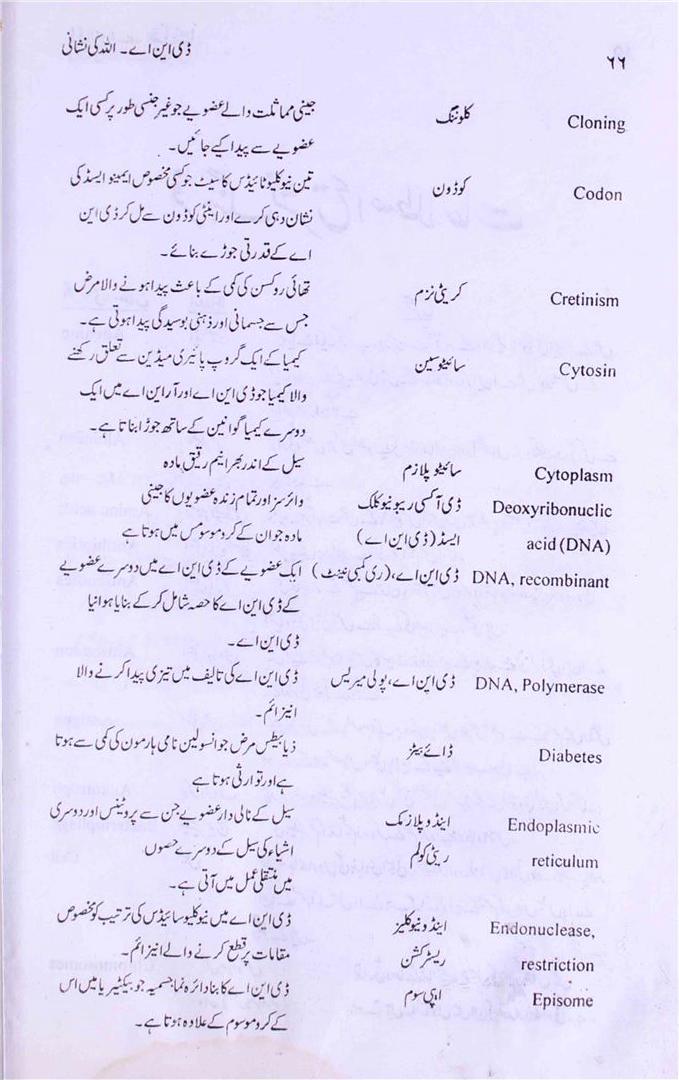 ڈی این اے۔ اللہ کی نشانی
۶۶
Cloning کلوننگ جینی مماثلت والے عضویے جو غیر جنسی طور پر کسی ایک
عضویے سے پیدا کیے جائیں۔
Codon کوڈون تین نیوکلیوٹائیڈس کا سیٹ جو کسی مخصوص ایمینو ایسڈ کی
نشان دہی کرے اور اینٹی کوڈون سے مل کر ڈی این
اے کے قدرتی جوڑے بنائے۔
Cretinism کریٹی نزم تھائی روکسن کی کمی کے باعث پیدا ہونے والا مرض
جس سے جسمانی اور ذہنی بوسیدگی پیدا ہوتی ہے۔
Cytosin سائیٹوسین کیمیا کے ایک گروپ پائیری میڈین سے تعلق رکھنے
والا کیمیا جو ڈی این اے اور آر این اے میں ایک
دوسرے کیمیا گوانین کے ساتھ جوڑا بناتا ہے۔
Cytoplasm سائیٹوپلازم سیل کے اندر بھرا نیم رقیق مادہ
Deoxyribonuclic ڈی آکسی ریبونیوکلک وائرسز اور تمام زندہ عضویوں کا جینی
acid (DNA) ایسڈ (ڈی این اے) مادہ جو ان کے کروموسومس میں ہوتا ہے
DNA, recombinant ڈی این اے، (ری کمبی نینٹ) ایک عضویے کے ڈی این اے میں دوسرے عضویے
کے ڈی این اے کا حصہ شامل کر کے بنایا ہوا نیا
ڈی این اے۔
DNA, Polymerase ڈی این اے، پولی میریس ڈی این اے کی تالیف میں تیزی پیدا کرنے والا
انیزائم۔
Diabetes ڈائے بیٹز ذیابیطس مرض جو انسولین نامی ہارمون کی کمی سے ہوتا
ہے اور توارثی ہوتا ہے
Endoplasmic اینڈوپلازمک سیل کے نالی دار عضویے جن سے پروٹینس اور دوسری
reticulum ریٹی کولم اشیاء کی سیل کے دوسرے حصوں
میں منتقلی عمل میں آتی ہے۔
Endonuclease, اینڈونیوکلیز ڈی این اے میں نیوکلیوسائیڈس کی ترتیب کو مخصوص
restriction ریسٹرکشن مقامات پر قطع کرنے والے انیزائم۔
Episome اپی سوم ڈی این اے کا بنا دائرہ نما جسمیہ جو بیکٹیریا میں اس
کے کروموسوم کے علاوہ ہوتا ہے۔